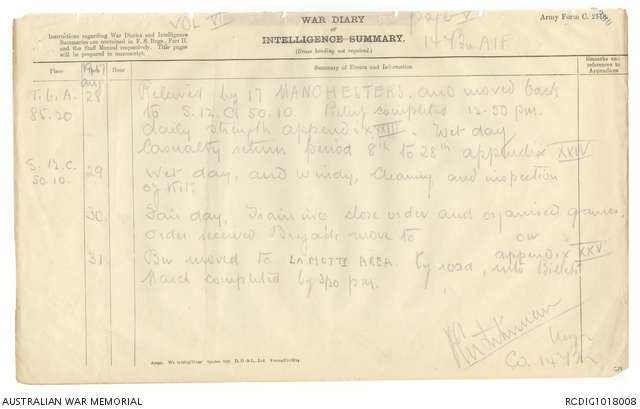 VOL VI
WAR DIARY
or
INTELLIGENCE SUMMARY.
(Erase heading not required.)
page V
14 Bn AIF
Army Form C. 2118.
Instructions regarding War Diaries and Intelligence
Summaries are contained in F. S. Regs., Part II.
and the Staff Manual respectively. Title pages
will be prepared in manuscript.
Place Date Hour Summary of Events and Information Remarks and references to Appendices
1917
Aug
28 Relieved by 17 MANCHESTERS, and moved back
to S.12.C.50.10. Relief completed 12-50 pm.
daily strength appendix XXIII. Wet day
Casualty return period 8th to 28th appendix XXIV
S.12.C.
50.10. 29 Wet day, and windy, cleaning and inspection
of Kit.
30. Fair day, Training close order and organised games.
Order received Brigade move to
31. Bn moved to LA MOTTE AREA. by road, into Billets appendix XXV
March completed by 3/20 pm.
Major
Co. 14 Bn
AUSTRALIAN WAR MEMORIAL
RCDIG1018008